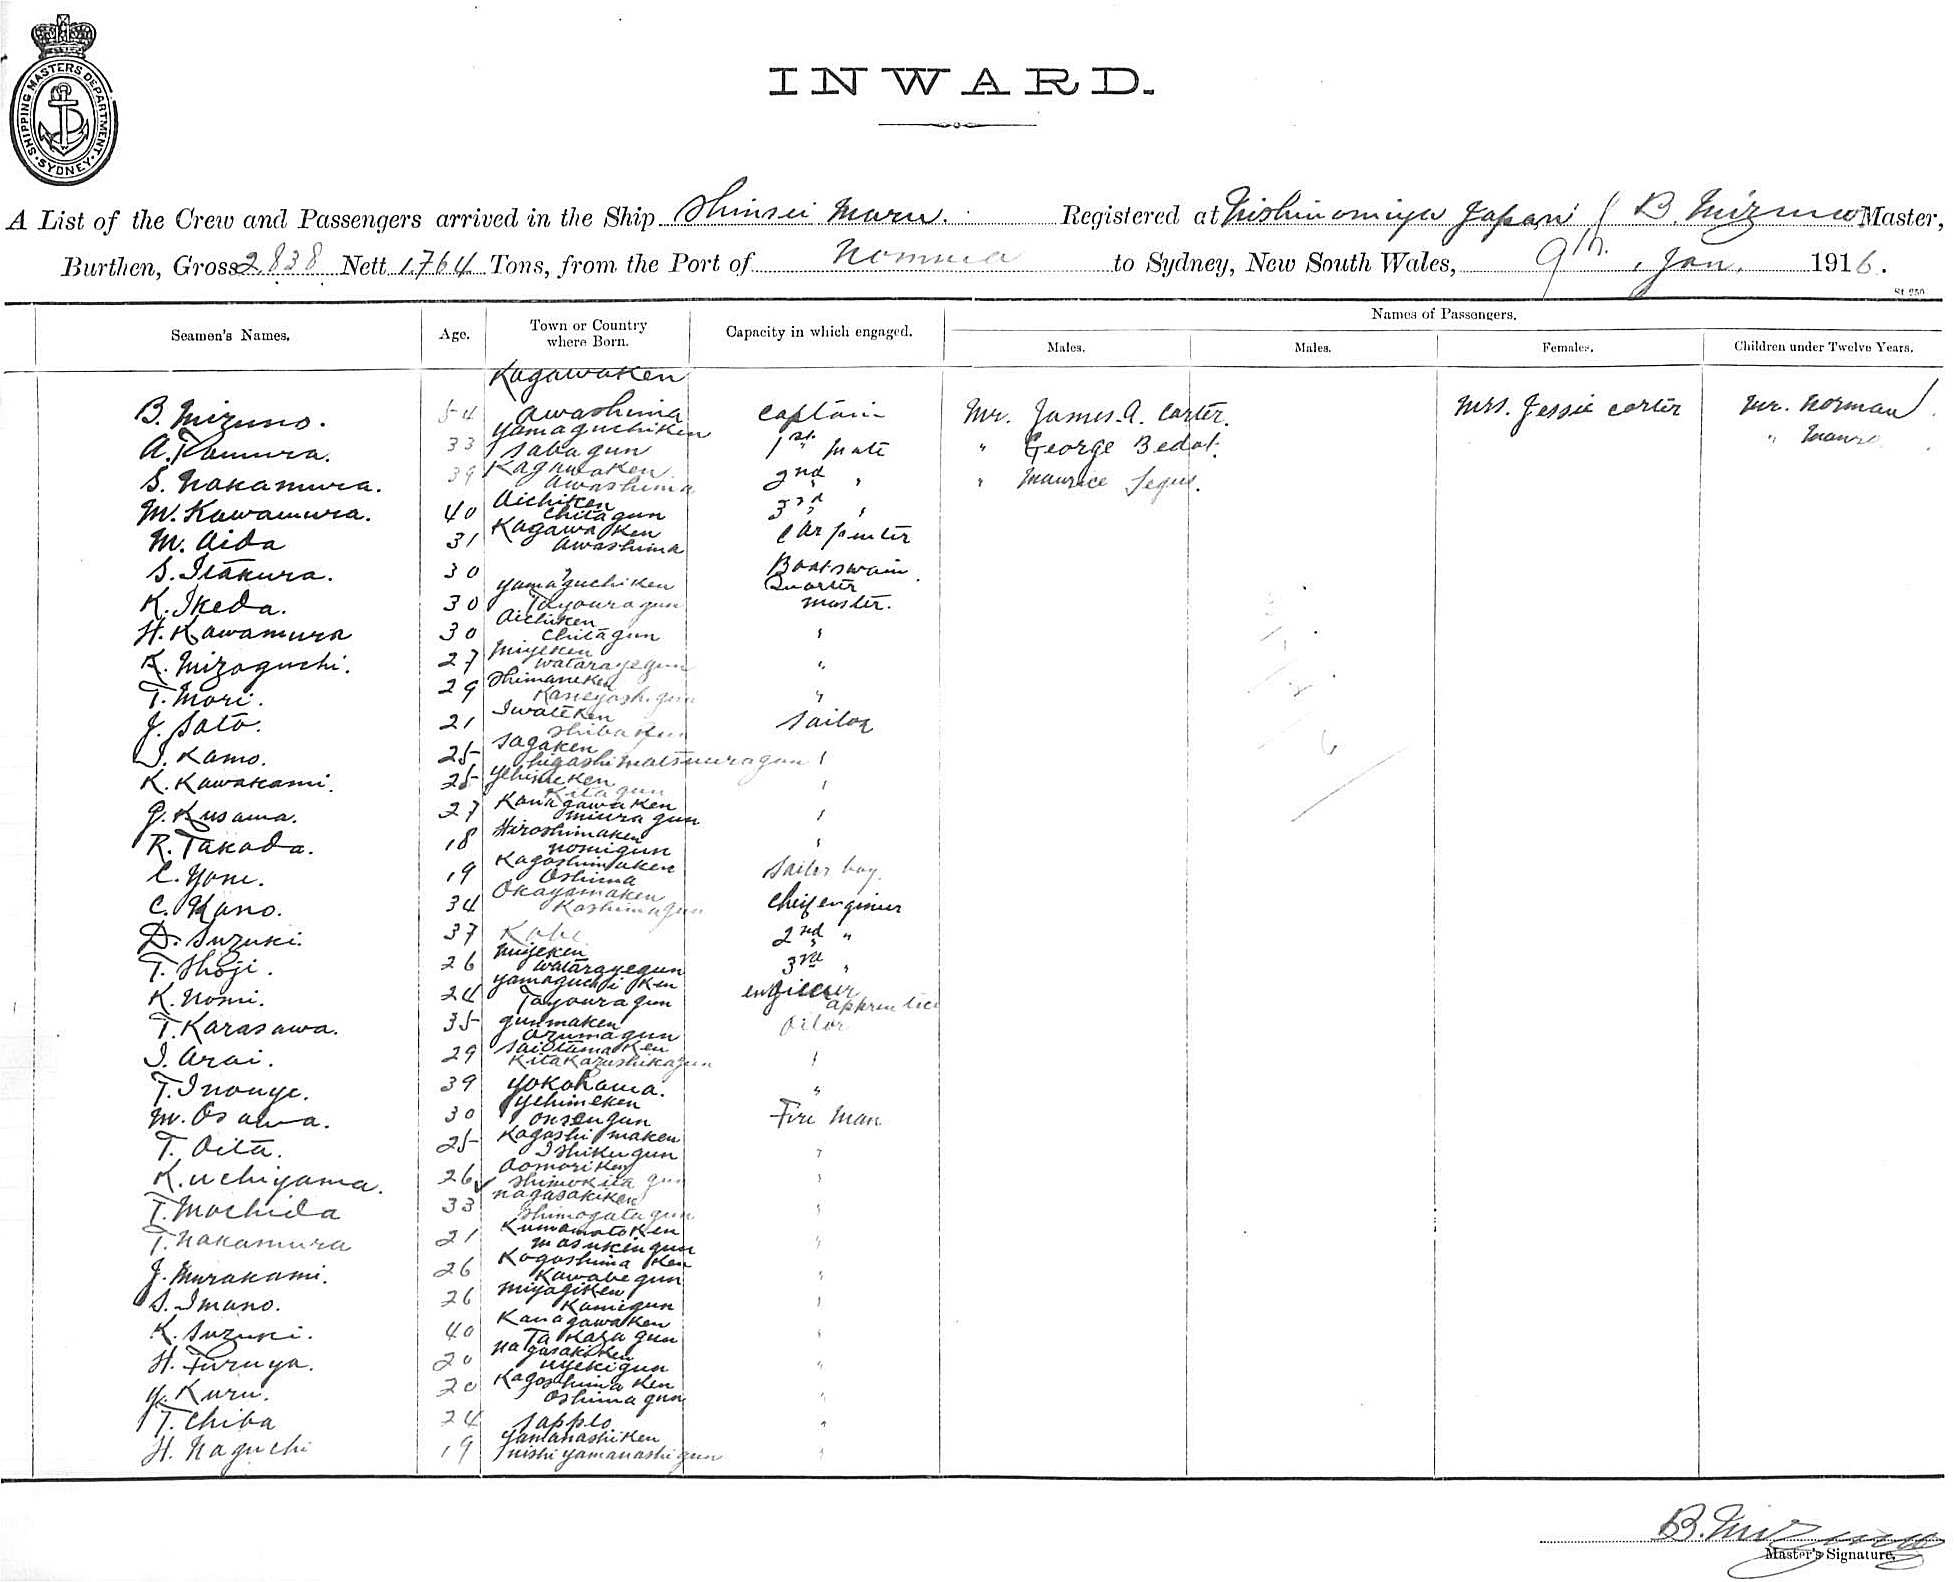 SHIPPING MASTERS DEPARTMENT. SYDNEY
INWARD.
A List of the Crew and Passengers arrived in the Ship Shinsei Maru. Registered at Nishinomiya Japan B. Mizuno Master,
Burthen, Gross 2838 Nett 1764 Tons, from the Port of to Sydney, New South Wales, 9th. Jan. 1916.
St. 250
Seamen's Names. Age. Town or Country where Born. Capacity in which engaged. Names of Passengers.
Males. Males. Females. Children under Twelve Years.
Kagawaken
B. Mizuno. 54 Awashima Captain Mr. James. A. Carter. Mrs. Jessie Carter Mr. Norman
Yamaguchiken
A. Tamura. 33 Sabagun 1st mate " George Bedot. "
Kagawaken
S. Nakamura. 39 Awashima 2nd " " Maurice
Aichiken
M. Kawamura. 40 Chitagun 3rd "
Kagawaken
M. Aida 31 Awashima Carpenter
S. Itakura. 30 " Boatswain
Yamaguchiken Quarter
K. Ikeda. 30 Toyouragun master.
Aichiken
H. Kawamura 30 Chitagun "
Miyeken
K. Mizoguchi. 27 Watarayegun "
Shimaneken
T. Mori. 29 "
Iwateken
J. Sato. 21 Sailor
Sagaken
I. Kamo. 25 Higashimatsuuragun "
Yehimeken
K. Kawakami. 25 Kitagun "
Kanagawaken
G. Kusama. 27 Miuragun "
Hiroshimaken
R. Takada. 18 Nomigun "
Kagoshimaken
C. Yone. 19 Oshima Sailor boy.
Okayamaken
C. Kano. 34 Koshimagun Cheif enginier
D. Suzuki. 37 Kobe 2nd "
Miyeken
T. Shoji. 26 Watarayegun 3rd "
Yamaguchi Ken
K. Nomi. 24 Toyouragun apprentice
Gunmaken
T. Karasawa. 35 Orumagun Oiler
Saiotama Ken
I. Arai. 29 Kitakazushikagun "
T. Inouye. 39 Yokohama. "
Yehimeken
M. Osawa. 30 Onsengun Fire man
Kagoshimaken
T. Oita. 25 Ishikugun "
Aomoriken
K. Uchiyama. 26 Shimokita gun "
Nagasakiken
T. Mochida 33 Shimogatagun "
Kumamoto Ken
T. Nakamura 21 Masukigun "
Kagoshima Ken
J. Murakami. 26 Kawabegun "
Miyagiken
S. Imano. 26 Kamigun "
Kanagawaken
K. Suzuki. 40 Takaragun "
Nagasakiken
H. Furuya. 20 Uyekigun "
Kagoshima Ken
Y. Kuru. 20 Oshimagun "
T. Chiba 24 Sapplo "
Yamanashiken
H. Naguchi 19 Nishiyamanashigun "
B. Mizuno
Master's Signature.